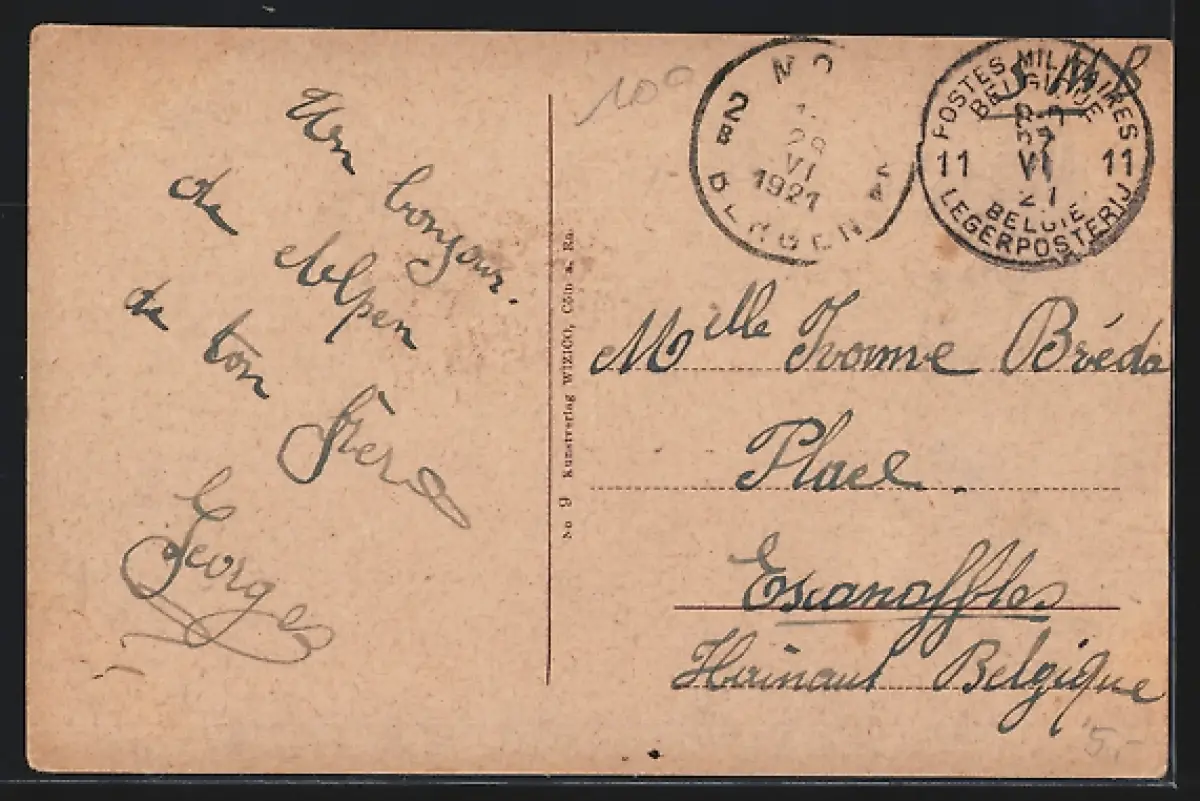 Un bonjour.
de Alpen
de ton frère
Georges
100
2
B
MO
29
VI
1921
BERGEN
POSTES MILITAIRES
BELGIQUE
11 VI 11
21
BELGIË
LEGERPOSTERIJ
S M B
No 9 Kunstverlag WIZICO, Cöln a. Rh.
Mlle Ivonne Bréda
Place.
Escanaffles
Hainaut Belgique
5,-